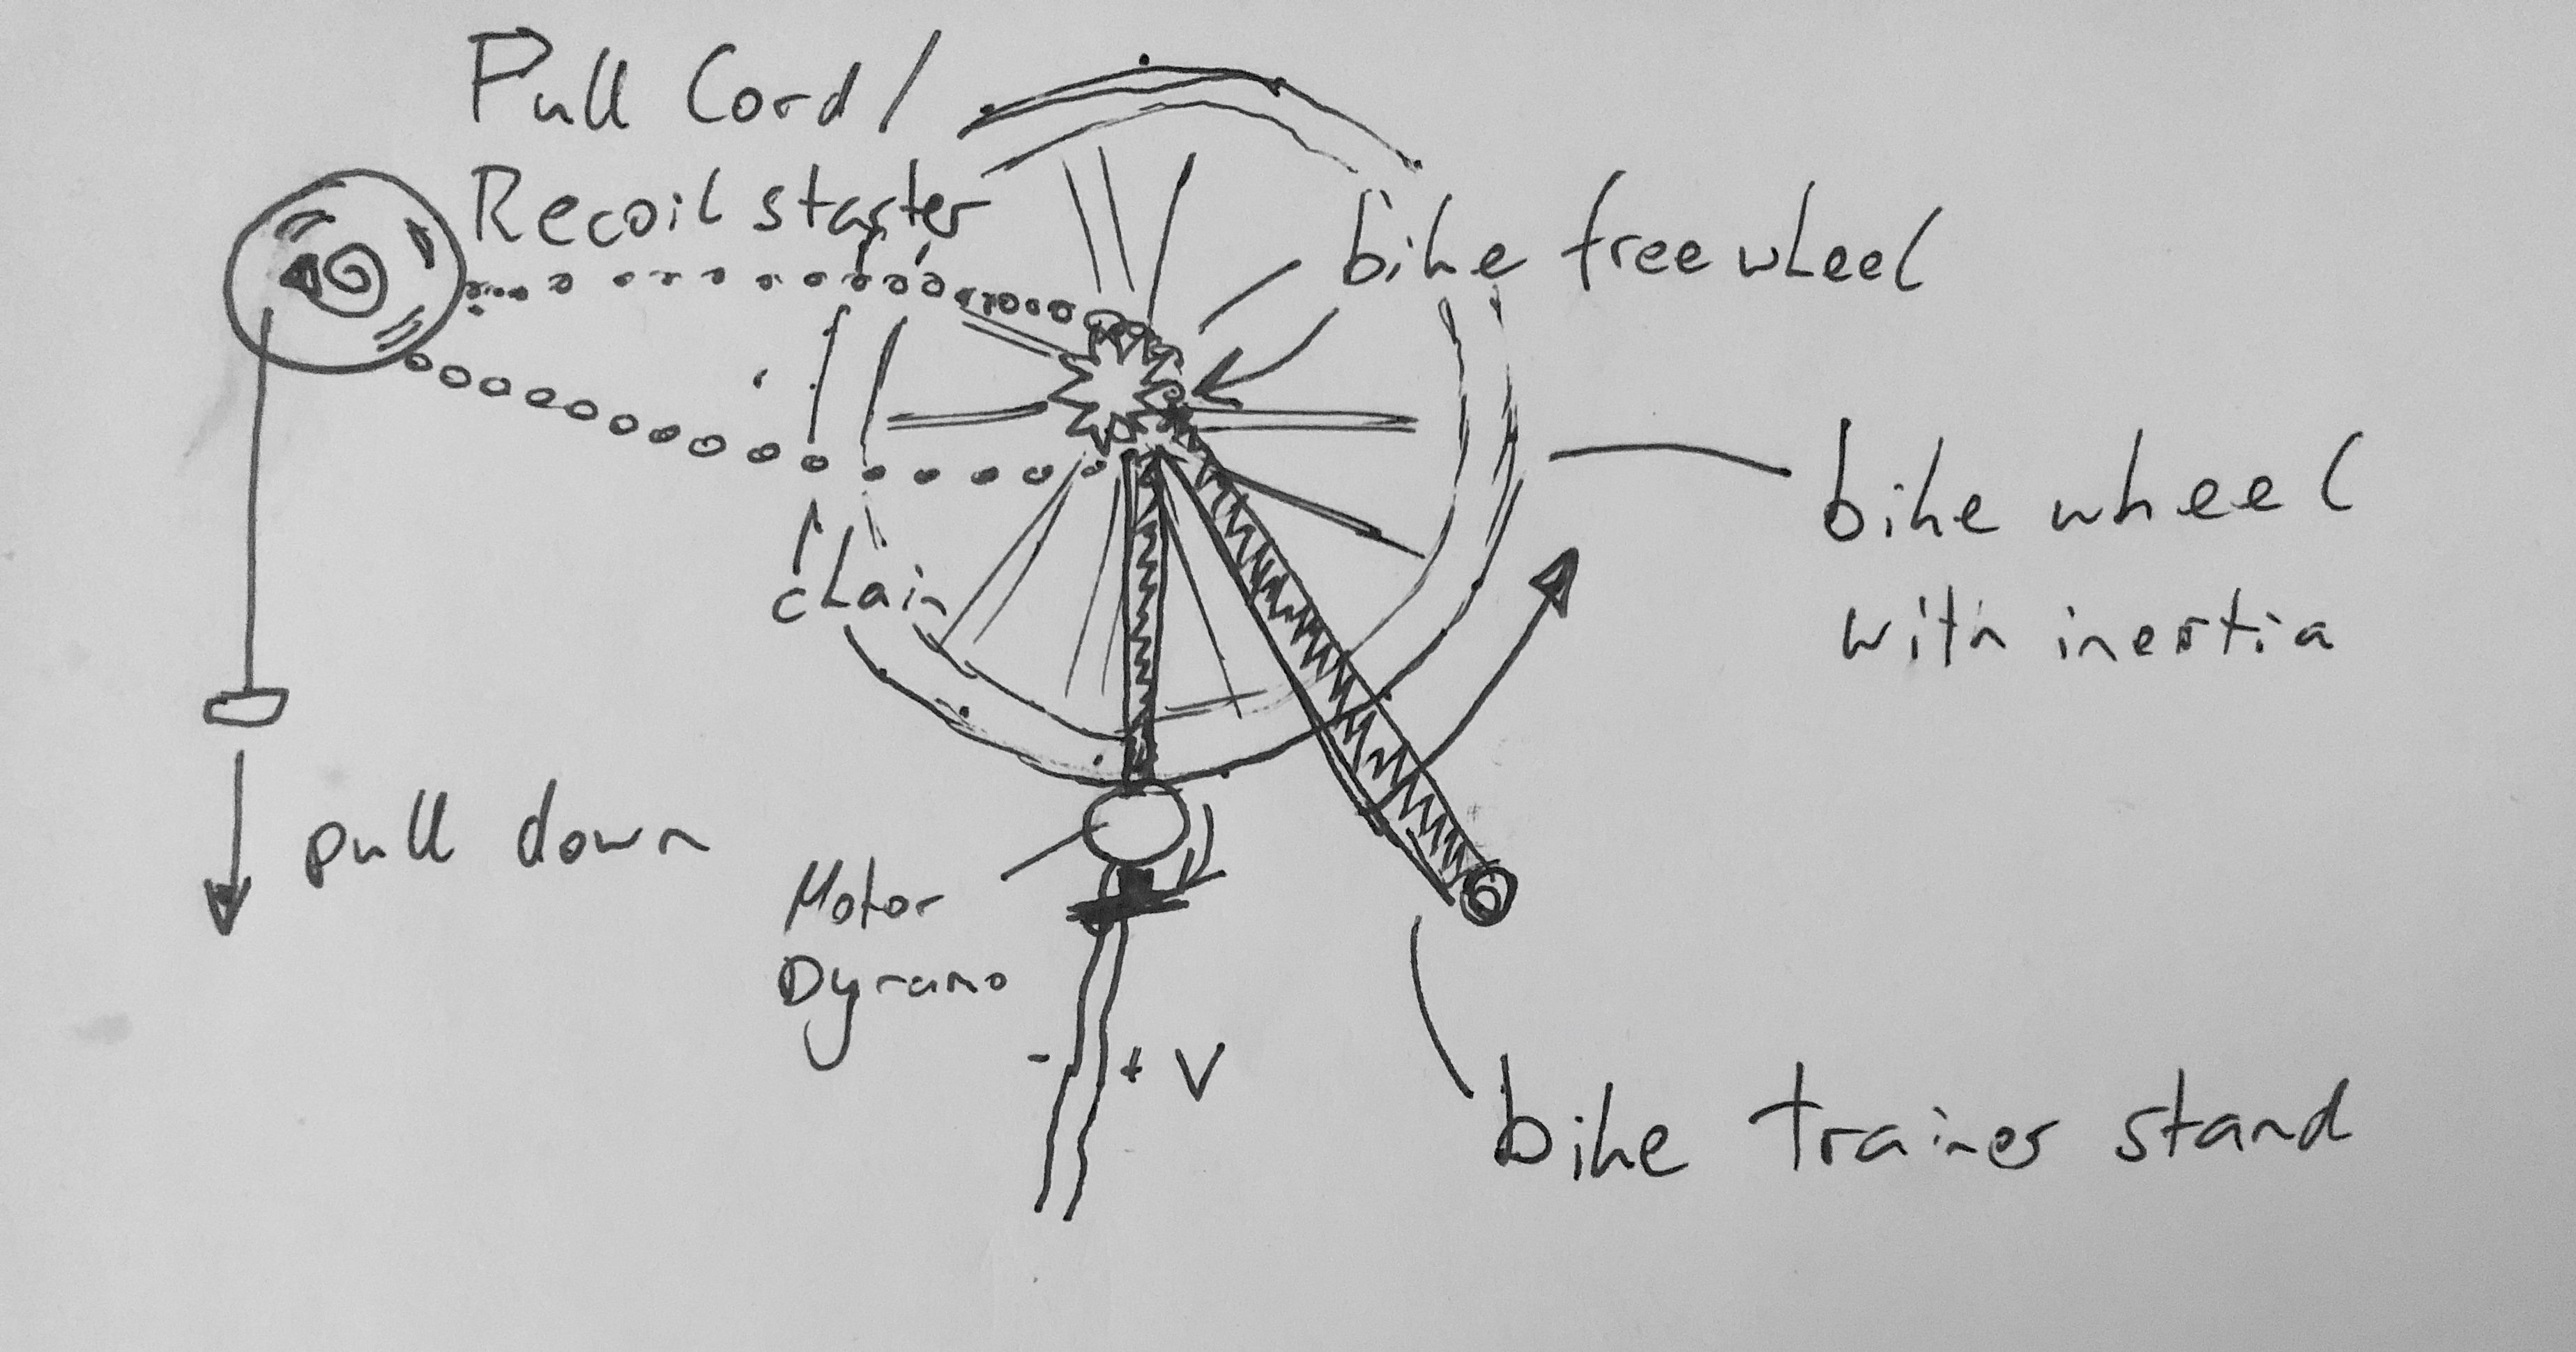 Pull Cord /
Recoil starter
bike freewheel
bike wheel
with inertia
chain
pull down
Motor
Dynamo
- + V
bike trainer stand